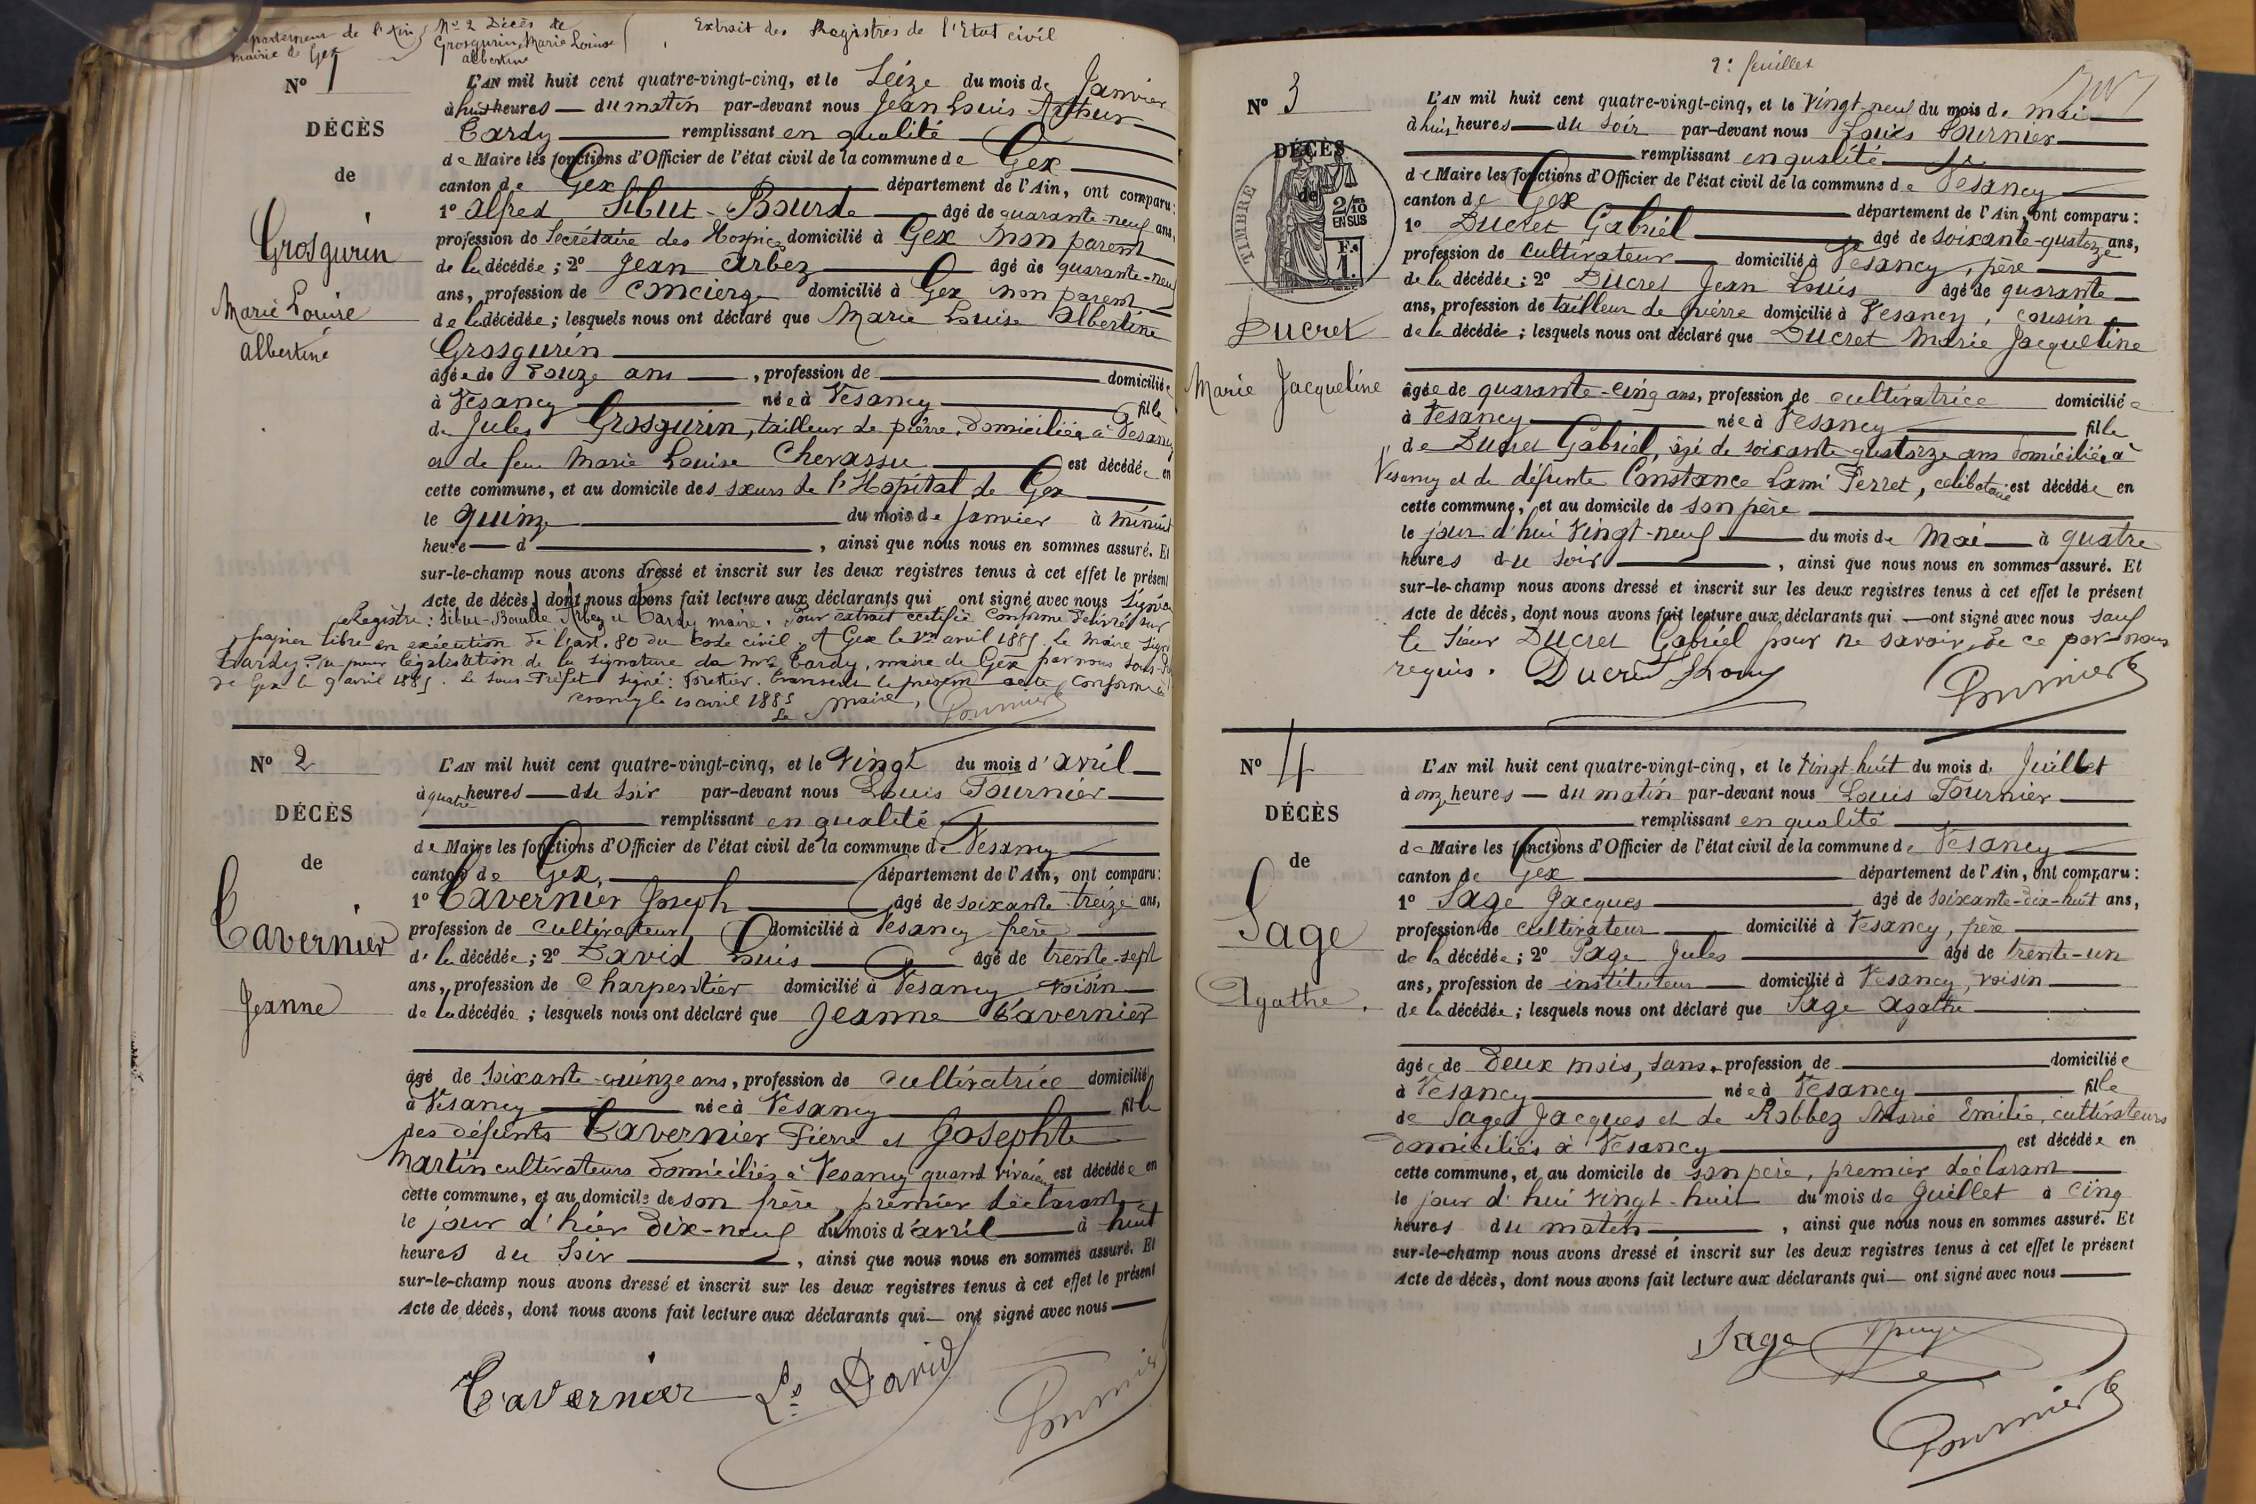 partement de l'Ain
mairie de Gex
No 2 Décès de
Grosgurin, Marie Louise
Albertine
Extrait des Registres de l'Etat civil
No 1
DÉCÈS
de
Grosgurin
Marie Louise
Albertine
L'AN mil huit cent quatre-vingt-cinq, et le Seize du mois de Janvier
à huit heures — du matin par-devant nous Jean Louis Arthur
Tardy remplissant en qualité
de Maire les fonctions d'Officier de l'état civil de la commune de Gex
canton de Gex département de l'Ain, ont comparu :
1o Alfred Sibut-Bourde âgé de quarante-neuf ans,
profession de Secrétaire des Hospices domicilié à Gex non parent
de la décédée ; 2o Jean Arbez âgé de quarante-neuf
ans, profession de Concierge domicilié à Gex non parent
de la décédée ; lesquels nous ont déclaré que Marie Louise Albertine
Grosgurin
âgée de Douze ans, profession de domiciliée
à Vesancy née à Vesancy fille
de Jules Grosgurin, tailleur de pierre, domiciliés à Vesancy
et de feue Marie Louise Chevassu est décédée en
cette commune, et au domicile des sœurs de l'Hôpital de Gex
le quinze du mois de Janvier à minuit
heure d' , ainsi que nous nous en sommes assuré. Et
sur-le-champ nous avons dressé et inscrit sur les deux registres tenus à cet effet le présent
Acte de décès, dont nous avons fait lecture aux déclarants qui ont signé avec nous Signé au
Registre : Sibut-Bourde Arbez et Tardy maire. Pour extrait certifié conforme délivré sur
papier libre en exécution de l'art. 80 du Code civil. A Gex le 1er avril 1885 Le Maire Signé
Tardy. Vu pour légalisation de la signature de Mr Tardy, maire de Gex par nous Sous-
de Gex le 9 avril 1885. Le Sous-Préfet signé : Transcrit le présent acte conforme à
Vesancy le 10 avril 1885
Le Maire, Fournier
No 2
DÉCÈS
de
Tavernier
Jeanne
L'AN mil huit cent quatre-vingt-cinq, et le Vingt du mois d'avril
à quatre heures — du soir par-devant nous Louis Fournier
remplissant en qualité
de Maire les fonctions d'Officier de l'état civil de la commune de Vesancy
canton de Gex département de l'Ain, ont comparu :
1o Tavernier Joseph âgé de soixante-treize ans,
profession de cultivateur domicilié à Vesancy frère
de la décédée ; 2o David Louis âgé de trente-sept
ans, profession de Charpentier domicilié à Vesancy voisin
de la décédée ; lesquels nous ont déclaré que Jeanne Tavernier
âgé de soixante-quinze ans, profession de cultivatrice domicilié
à Vesancy née à Vesancy fille
des défunts Tavernier Pierre et Josephte
Martin cultivateurs domiciliés à Vesancy quand vivaient est décédée en
cette commune, et au domicile de son frère, premier déclarant
le jour d'hier dix-neuf du mois d'avril à huit
heures du soir , ainsi que nous nous en sommes assuré. Et
sur-le-champ nous avons dressé et inscrit sur les deux registres tenus à cet effet le présent
Acte de décès, dont nous avons fait lecture aux déclarants qui — ont signé avec nous
Tavernier Ls David
Fournier
2e feuillet
No 3
DÉCÈS
de
TIMBRE
2/10
EN SUS
F.
1.
Ducret
Marie Jacqueline
L'AN mil huit cent quatre-vingt-cinq, et le Vingt-neuf du mois de mai
à huit heures — du soir par-devant nous Louis Fournier
remplissant en qualité
de Maire les fonctions d'Officier de l'état civil de la commune de Vesancy
canton de Gex département de l'Ain, ont comparu :
1o Ducret Gabriel âgé de soixante-quatorze ans,
profession de cultivateur domicilié à Vesancy, père
de la décédée ; 2o Ducret Jean Louis âgé de quarante
ans, profession de tailleur de pierre domicilié à Vesancy, cousin
de la décédée ; lesquels nous ont déclaré que Ducret Marie Jacqueline
âgée de quarante-cinq ans, profession de cultivatrice domiciliée
à Vesancy née à Vesancy fille
de Ducret Gabriel, âgé de soixante quatorze ans domiciliés à
Vesancy et de défunte Constance Lami Perret, célibataire est décédée en
cette commune, et au domicile de son père
le jour d'hui vingt-neuf du mois de Mai à quatre
heures du soir , ainsi que nous nous en sommes assuré. Et
sur-le-champ nous avons dressé et inscrit sur les deux registres tenus à cet effet le présent
Acte de décès, dont nous avons fait lecture aux déclarants qui — ont signé avec nous sauf
le sieur Ducret Gabriel pour ne savoir, de ce par nous
requis. Ducret Louis
Fournier
No 4
DÉCÈS
de
Sage
Agathe
L'AN mil huit cent quatre-vingt-cinq, et le Vingt-huit du mois de Juillet
à onze heures — du matin par-devant nous Louis Fournier
remplissant en qualité
de Maire les fonctions d'Officier de l'état civil de la commune de Vesancy
canton de Gex département de l'Ain, ont comparu :
1o Sage Jacques âgé de soixante-dix-huit ans,
profession de cultivateur domicilié à Vesancy, père
de la décédée ; 2o Page Jules âgé de trente-un
ans, profession de instituteur domicilié à Vesancy, voisin
de la décédée ; lesquels nous ont déclaré que Sage Agathe
âgée de Deux mois, sans profession de domiciliée
à Vesancy née à Vesancy fille
de Sage Jacques et de Robbez Marie Emilie, cultivateurs
domiciliés à Vesancy est décédée en
cette commune, et au domicile de son père, premier déclarant
le jour d'hui vingt-huit du mois de Juillet à cinq
heures du matin , ainsi que nous nous en sommes assuré. Et
sur-le-champ nous avons dressé et inscrit sur les deux registres tenus à cet effet le présent
Acte de décès, dont nous avons fait lecture aux déclarants qui — ont signé avec nous
Sage
Fournier